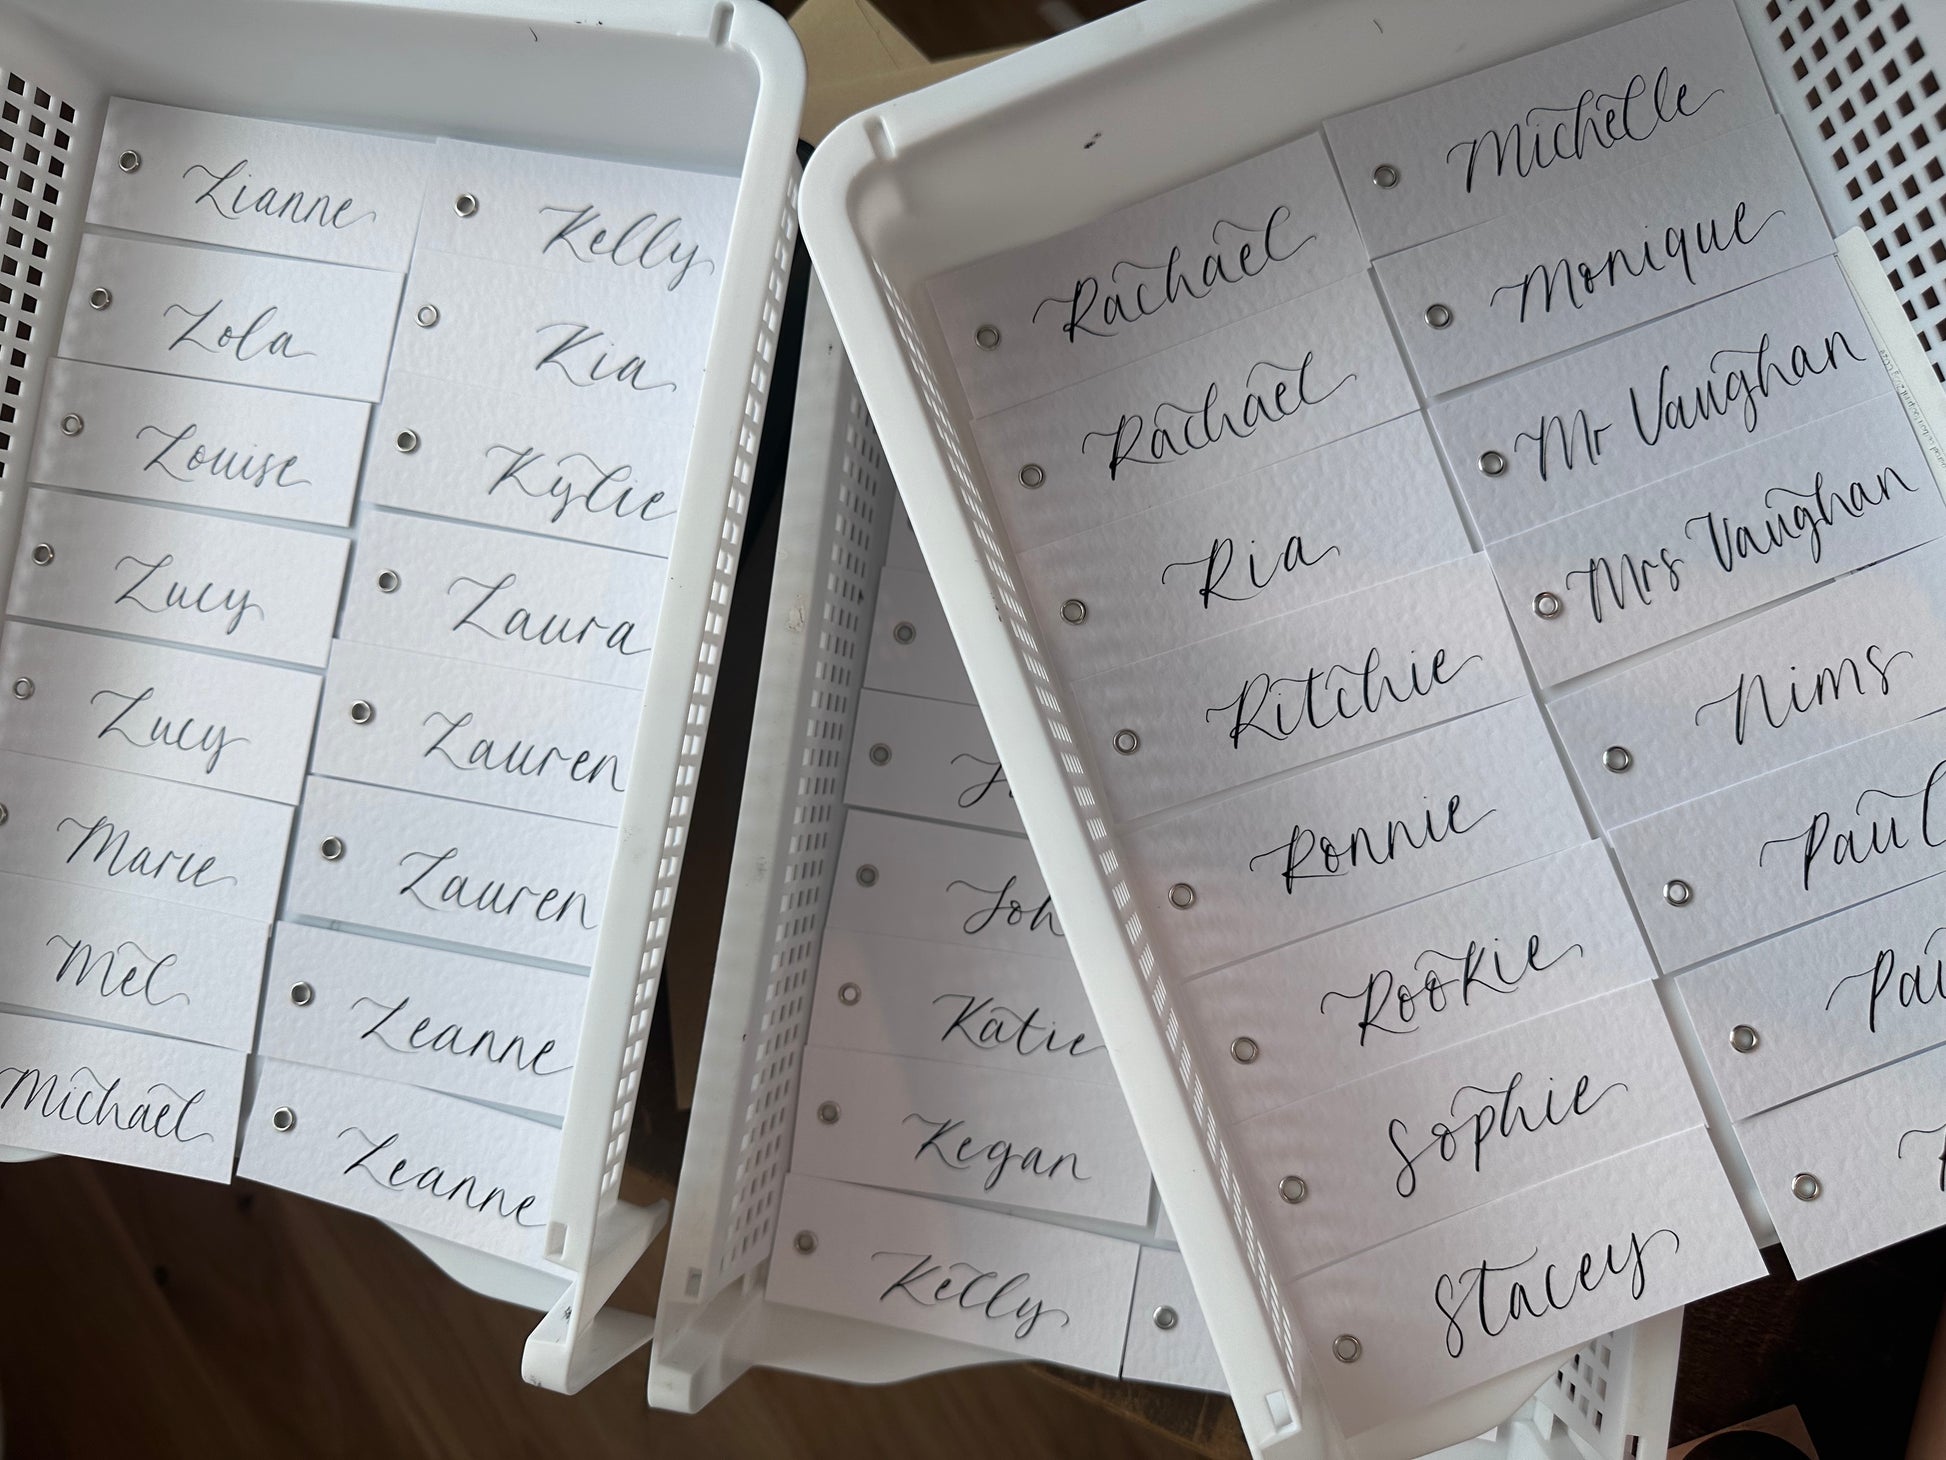 Lianne
Lola
Louise
Lucy
Lucy
Marie
Mel
Michael
Kelly
Kia
Kylie
Laura
Lauren
Lauren
Leanne
Leanne
Joh
Katie
Kegan
Kelly
Rachael
Rachael
Ria
Ritchie
Ronnie
Rookie
Sophie
Stacey
Michelle
Monique
Mr Vaughan
Mrs Vaughan
Nims
Paul
Pau